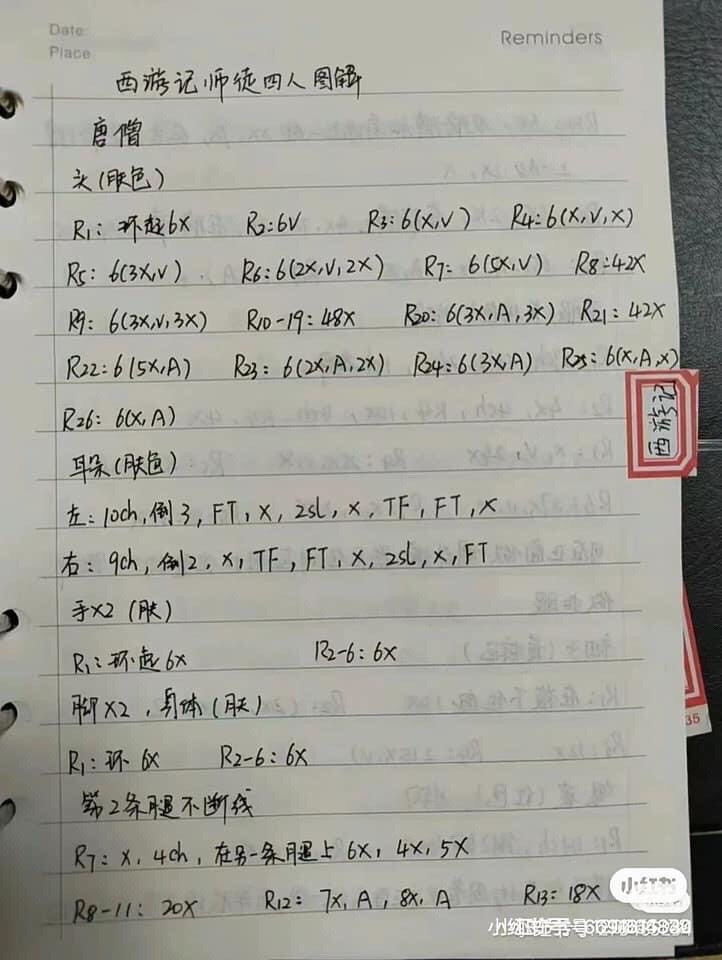 Date:
Place
Reminders
西游记师徒四人图解
唐僧
头(肤色)
R1: 环起6X R2=6V R3: 6(X,V) R4=6(X,V,X)
R5: 6(3X,V) R6: 6(2X,V,2X) R7: 6(5X,V) R8=42X
R9: 6(3X,V,3X) R10-19: 48X R20: 6(3X,A,3X) R21: 42X
R22=6(5X,A) R23: 6(2X,A,2X) R24=6(3X,A) R25: 6(X,A,X)
R26: 6(X,A)
西游记
耳朵(肤色):
左: 10ch,倒3, FT, X, 2sl, X, TF, FT, X
右: 9ch, 倒2, X, TF, FT, X, 2sl, X, FT
手X2 (肤)
R1: 环起6X R2-6: 6X
脚X2, 身体(肤)
R1: 环 6X R2-6: 6X
35
第2条腿不断线
R7: X, 4ch, 在另一条腿上 6X, 4X, 5X
R8-11: 20X R12: 7X, A, 8X, A R13: 18X
小红书